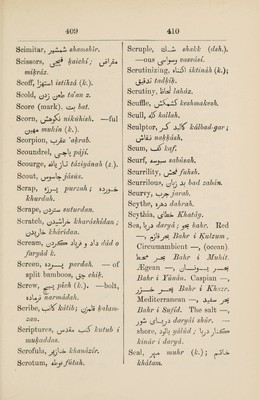 409
Scimitar, شمشیر shamshír.
Scissors, قیچی ḳaichí; مقراض
miḳráz.
Scoff, استهزا istihzá (k.).
Scold, طعن زدن ta'an z.
Score (mark). بت bat.
Scorn, نکوهش nikúhish. —ful
مهین muhín (k.).
Scorpion, عقرب 'aḳrab.
Scoundrel, پاجی pájí.
Scourge, تازیانه táziyánah (z.).
Scout, جاسوس jásús.
Scrap, پرزه purzah; خورده
khurdah.
Scrape, ستردن suturdan.
Scratch, خراشیدن kharáshídan;
خاریدن kháridan.
Scream, داد و فریاد کردن dád o
faryád k.
Screen, پرده pardah. — of
split bamboos, چق chiḳ.
Screw, پیچ pích (k.). —bolt,
نرماده narmádah.
Scribe, کاتب kátib; قلمزن ḳalam-
zan.
Scriptures, کتب مقدس kutub i
muḳaddas.
Scrofula, خنازیر khanázir.
Scrotum, فوطه fútah.
410
Scruple, شک shakk (dsh.).
—ous وسواسی vasvási.
Scrutinizing, اکتناه iktináh (k.);
تدقیق tadḳíḳ.
Scrutiny, لحاظ laház.
Scuffle, کشمکش keshmakesh.
Scull, کله kallah.
Sculptor, کالبدگر kálbad-gar;
نقاش naḳḳásh.
Scum, کف kaf.
Scurf, سبوسه sabúsah.
Scurrility, فحش fuhah.
Scurrilous, بد زبان bad zabín.
Scurvy, جرب jarab.
Scythe, دهره dahrah.
Scythia, خطای Khatáy.
Sea, دریا daryá; بحر bahr. Red
—, بحر قلزم Bahr i Kulzum.
Circumambient —, (ocean)
بحر محیط Bahr i Muhít.
Ægean —, بحر یونان
Bahr i Yúnán. Caspian —,
بحر خزر Bahr i Khezr.
Mediterranean —, بحر سفید
Bahr i Sufíd. The salt —,
دریای شور daryái shúr. —
shore, یالود yálúd; کنار دریا
kinár i daryá.
Seal, مهر muhr (k.); خاتم
khátam.